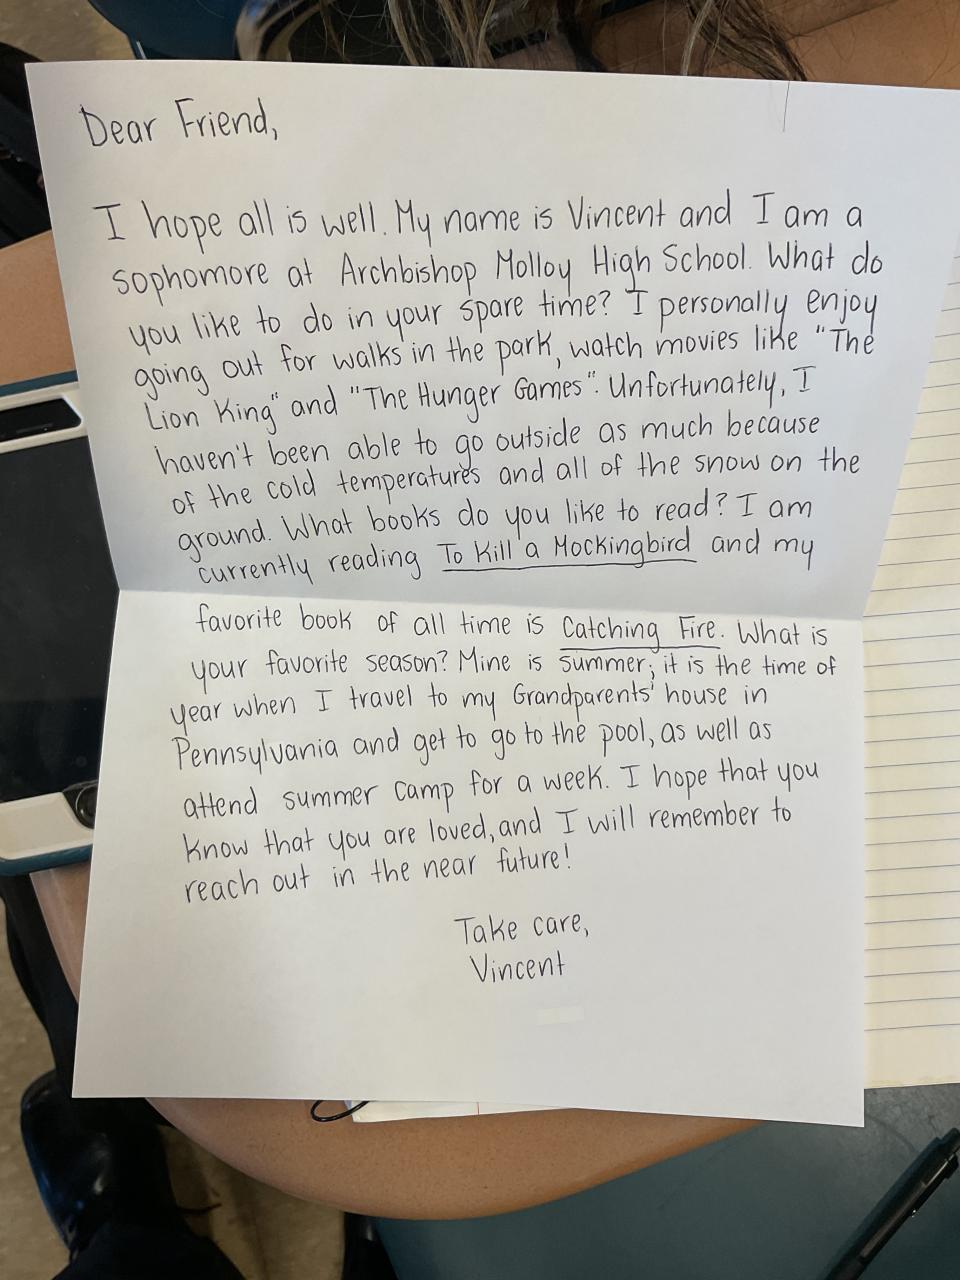 Dear Friend,
I hope all is well. My name is Vincent and I am a
sophomore at Archbishop Molloy High School. What do
you like to do in your spare time? I personally enjoy
going out for walks in the park, watch movies like "The
Lion King" and "The Hunger Games". Unfortunately, I
haven't been able to go outside as much because
of the cold temperatures and all of the snow on the
ground. What books do you like to read? I am
currently reading To Kill a Mockingbird and my
favorite book of all time is Catching Fire. What is
your favorite season? Mine is summer; it is the time of
year when I travel to my Grandparents' house in
Pennsylvania and get to go to the pool, as well as
attend summer camp for a week. I hope that you
know that you are loved, and I will remember to
reach out in the near future!
Take care,
Vincent